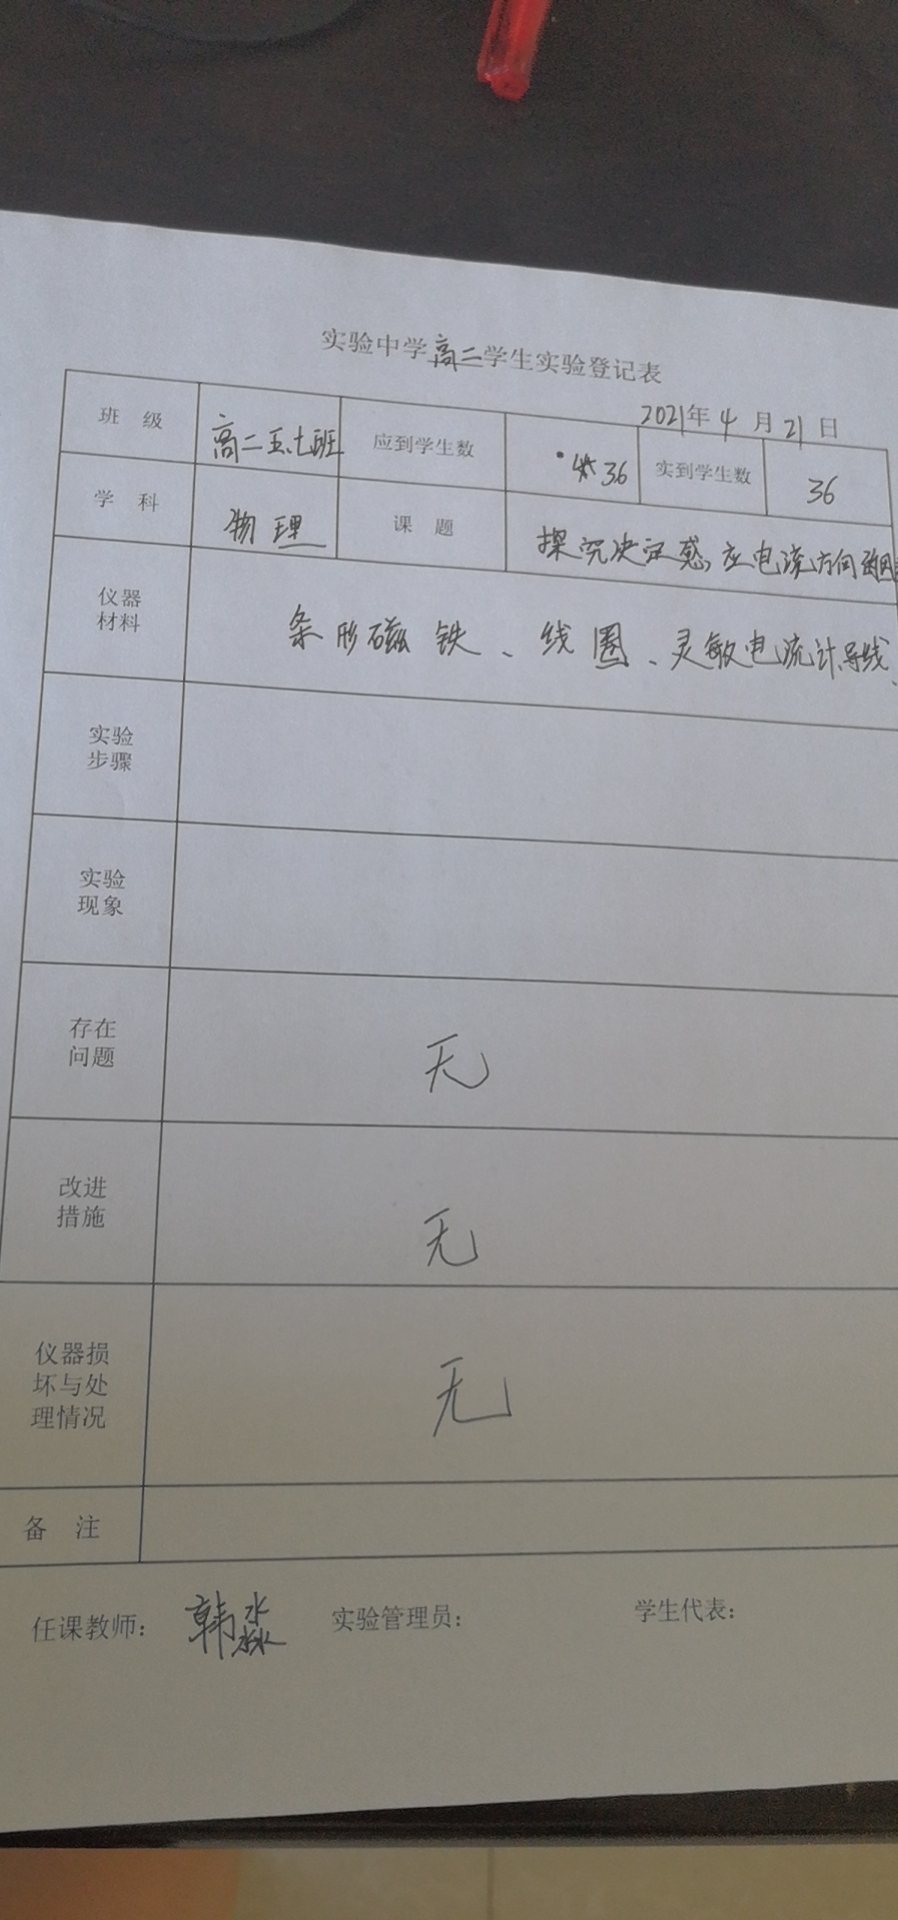 实验中学高二学生实验登记表
2021年4月21日
班 级 高二五、七班 应到学生数 36 实到学生数 36
学 科 物理 课 题 探究决定感应电流方向的因
仪器材料 条形磁铁、线圈、灵敏电流计、导线、
实验步骤
实验现象
存在问题 无
改进措施 无
仪器损坏与处理情况 无
备 注
任课教师：韩淼 实验管理员： 学生代表：